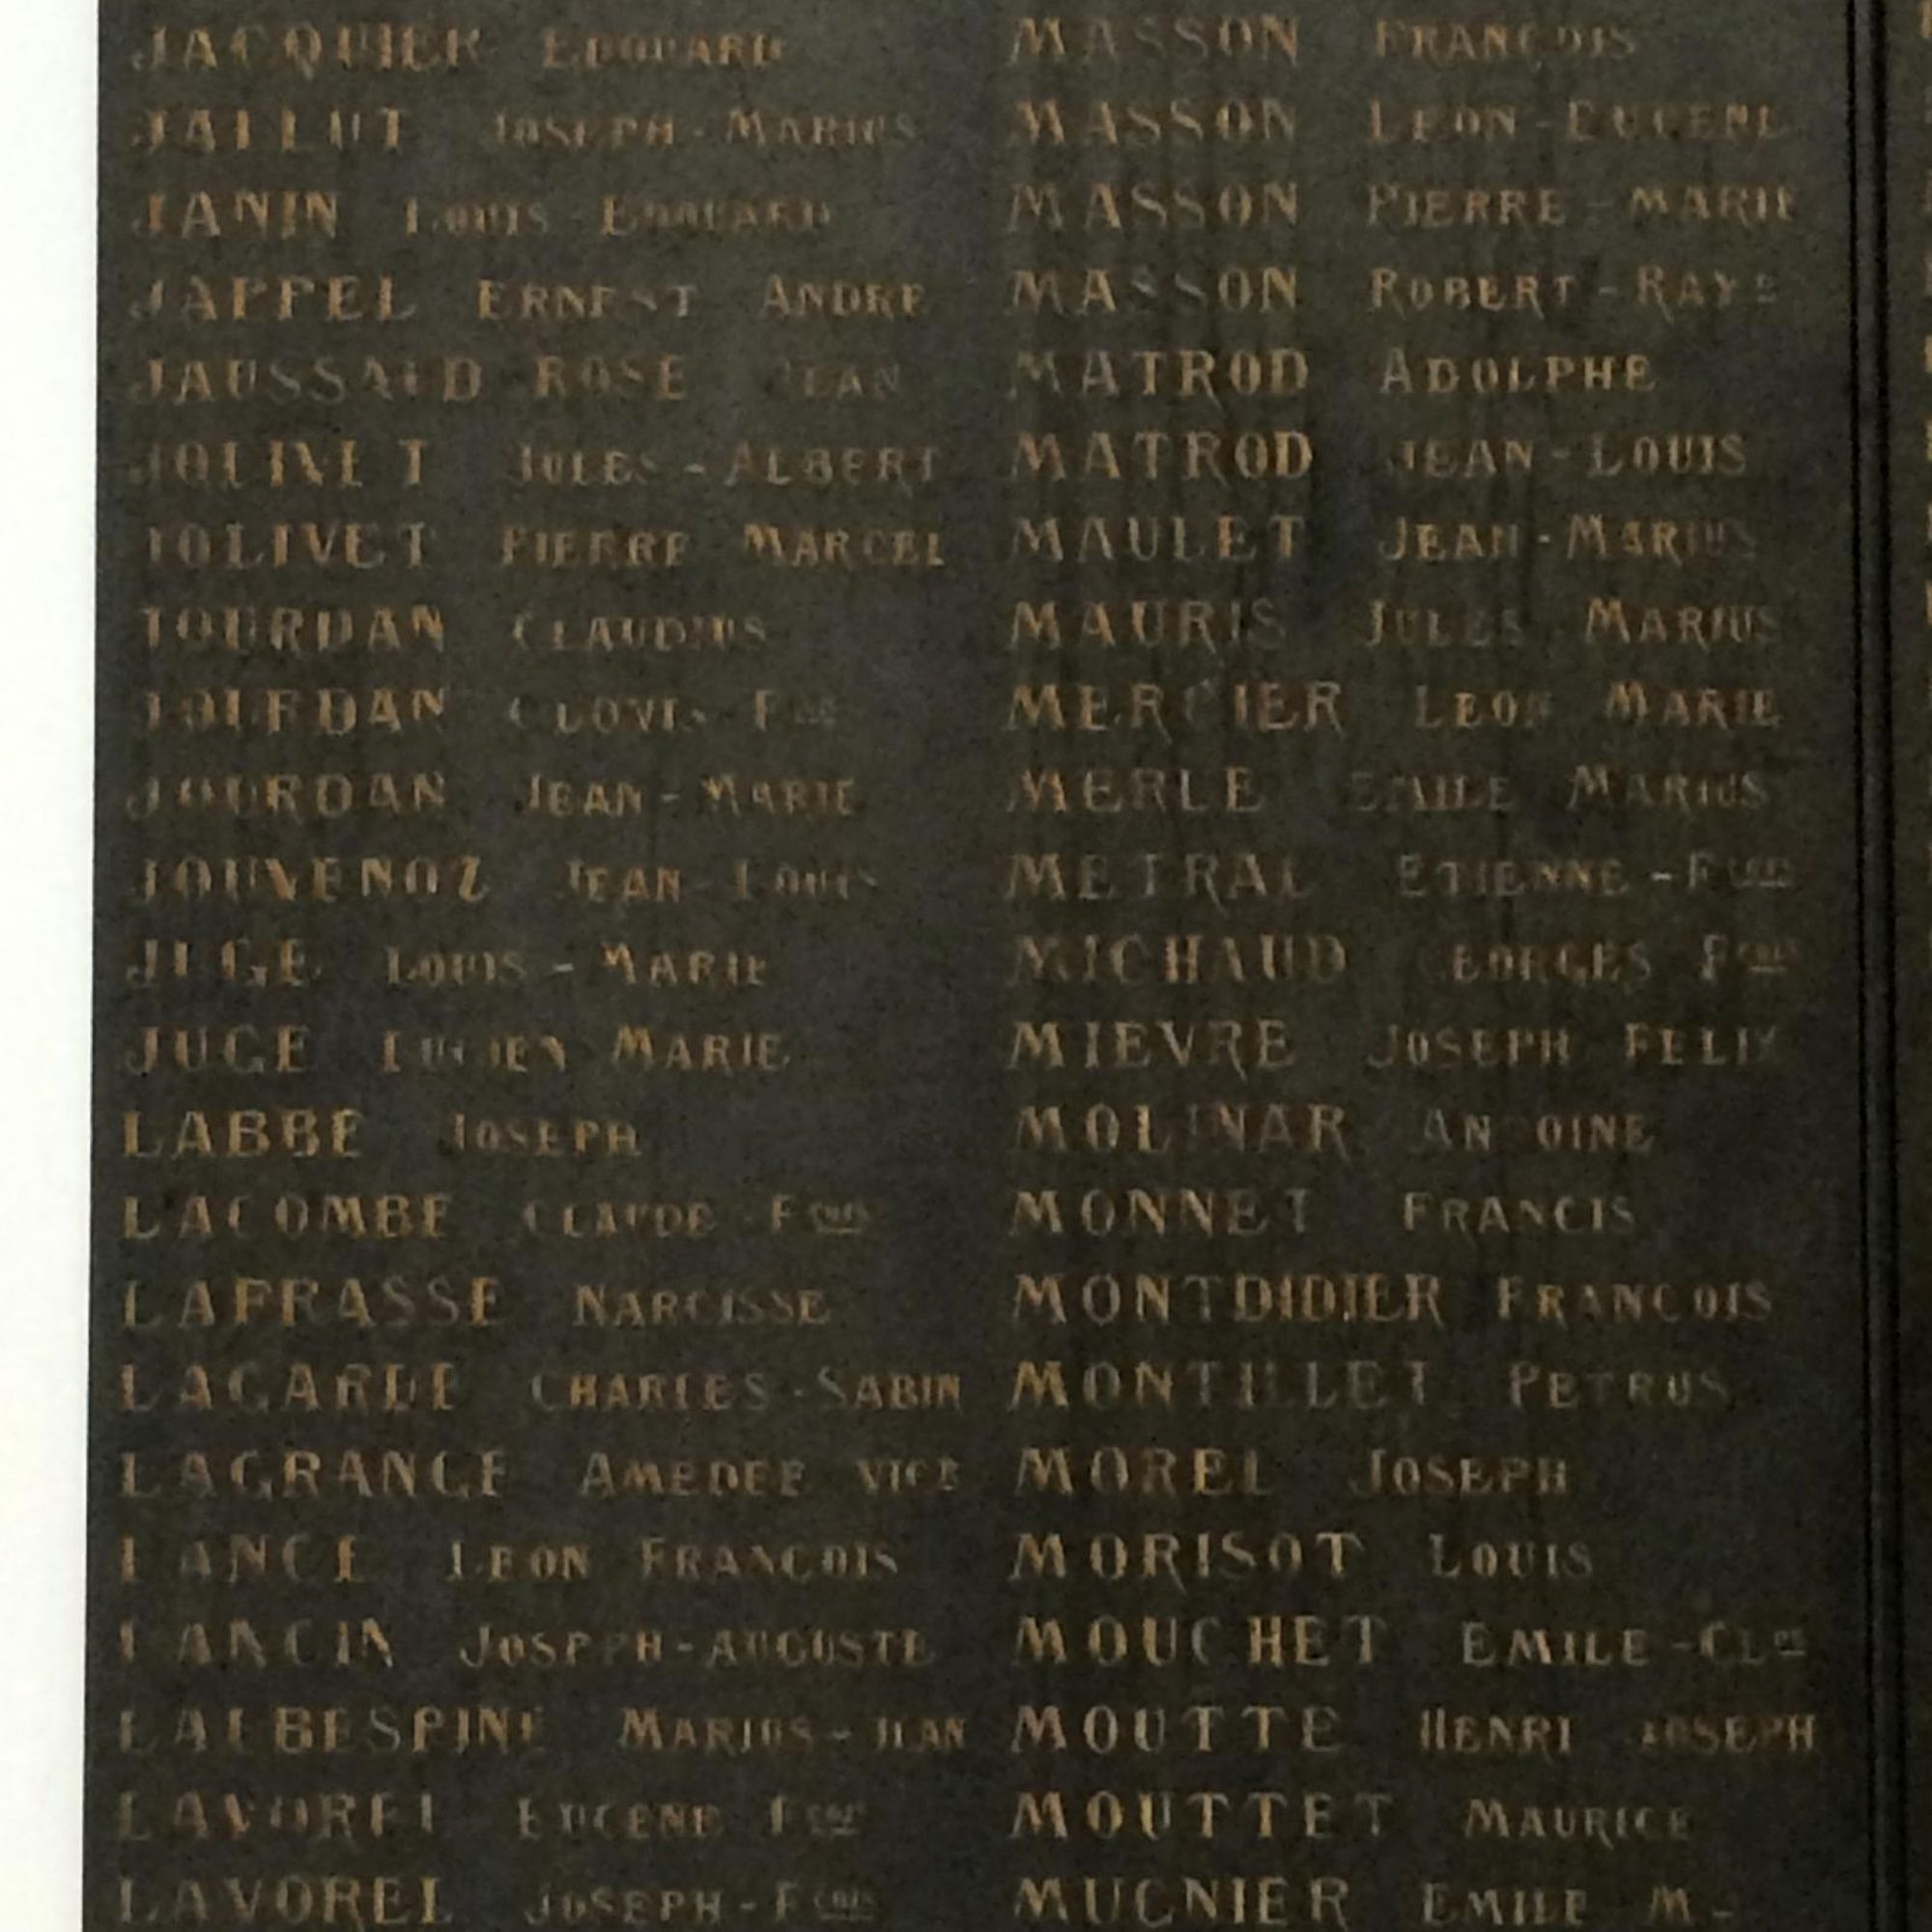 JACQUIER EDOUARD
JALLUT JOSEPH-MARIUS
JANIN LOUIS EDOUARD
JAPPEL ERNEST ANDRE
JAUSSAUD ROSE JEAN
JOLIVET JULES-ALBERT
JOLIVET PIERRE MARCEL
JOURDAN CLAUDIUS
JOURDAN CLOVIS Fçois
JOURDAN JEAN-MARIE
JOUVENOZ JEAN LOUIS
JUGE LOUIS-MARIE
JUGE LUCIEN MARIE
LABBE JOSEPH
LACOMBE CLAUDE Fçois
LAFRASSE NARCISSE
LAGARDE CHARLES-SABIN
LAGRANGE AMEDEE VICR
LANCE LEON FRANCOIS
LANCIN JOSEPH-AUGUSTE
LAUBESPINE MARIUS-JEAN
LAVOREL EUGENE Fçois
LAVOREL JOSEPH-Fçois
MASSON FRANÇOIS
MASSON LEON-EUGENE
MASSON PIERRE-MARIE
MASSON ROBERT-RAYD
MATROD ADOLPHE
MATROD JEAN-LOUIS
MAULET JEAN-MARIUS
MAURIS JULES MARIUS
MERCIER LEON MARIE
MERLE EMILE MARIUS
METRAL ETIENNE-Fçois
MICHAUD GEORGES Fçois
MIEVRE JOSEPH FELIX
MOLINAR ANTOINE
MONNET FRANCIS
MONTDIDIER FRANCOIS
MONTILLET PETRUS
MOREL JOSEPH
MORISOT LOUIS
MOUCHET EMILE-CLDE
MOUTTE HENRI JOSEPH
MOUTTET MAURICE
MUGNIER EMILE M